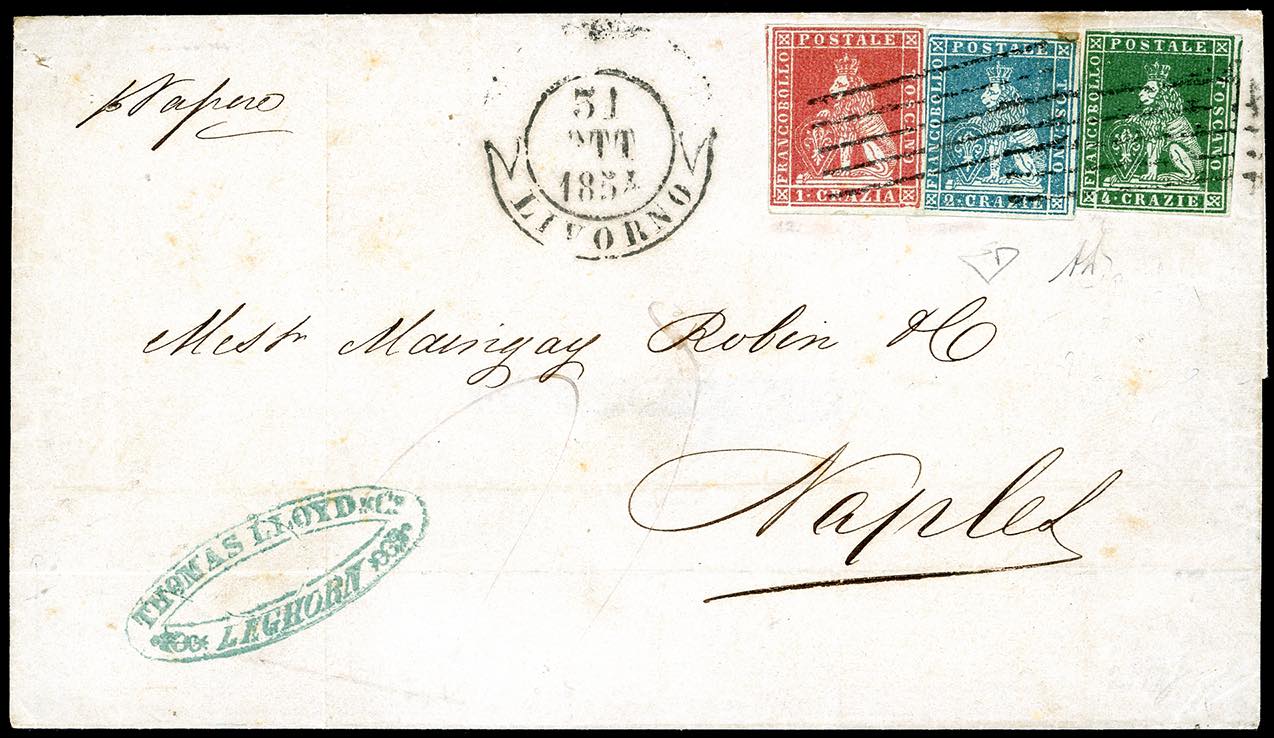 p Vapore
31
OTT
1854
LIVORNO
POSTALE
FRANCOBOLLO
TOSCANO
1·CRAZIA
POSTALE
FRANCOBOLLO
TOSCANO
2·CRAZIE
POSTALE
FRANCOBOLLO
TOSCANO
4·CRAZIE
Messr Maingay Robin &C
Naples
THOMAS LLOYD & Co
LEGHORN